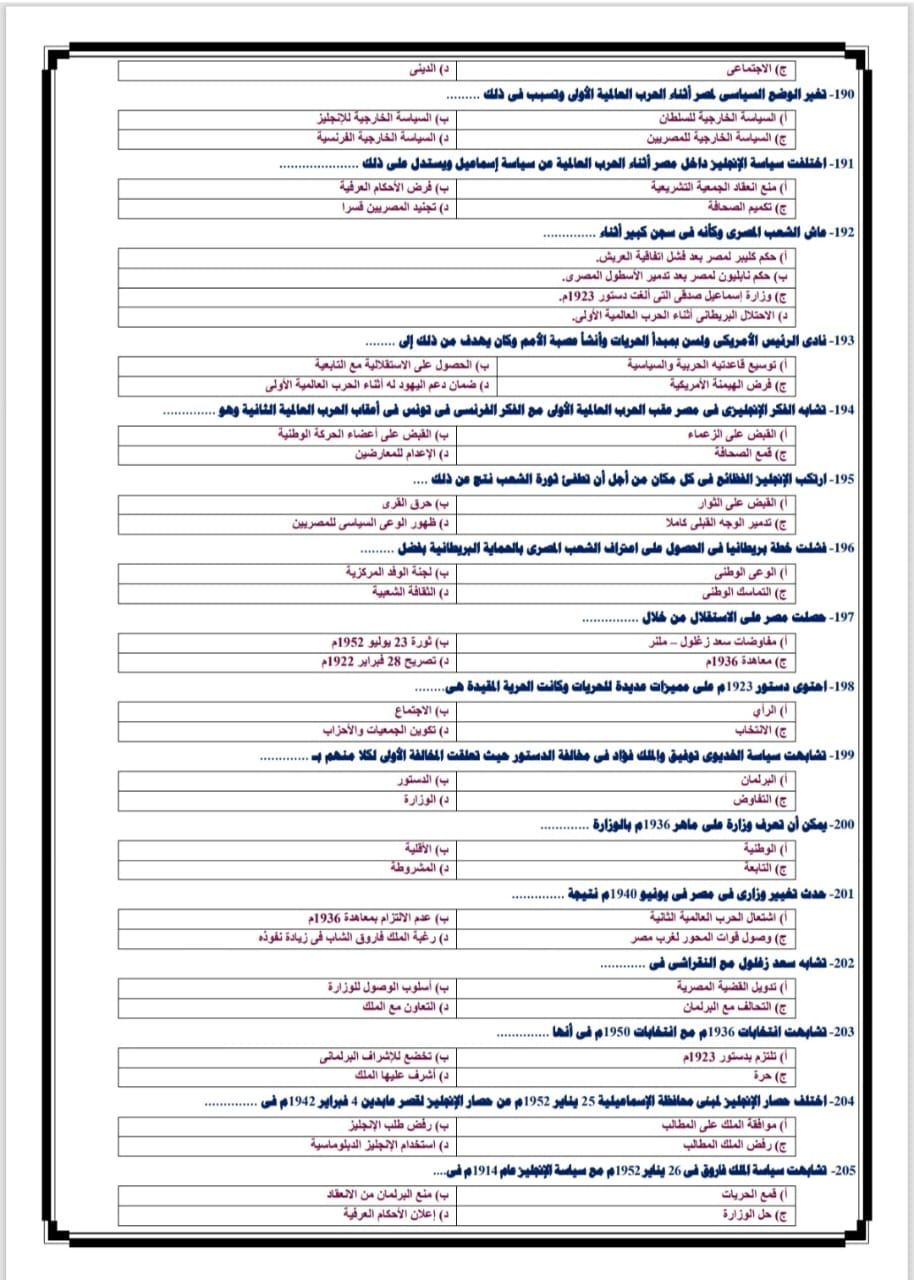 ج) الاجتماعى د) الدينى
190- تغير الوضع السياسى لمصر أثناء الحرب العالمية الأولى وتسبب فى ذلك .........
أ) السياسة الخارجية للسلطان ب) السياسة الخارجية للإنجليز
ج) السياسة الخارجية للمصريين د) السياسة الخارجية الفرنسية
191- اختلفت سياسة الإنجليز داخل مصر أثناء الحرب العالمية عن سياسة إسماعيل ويستدل على ذلك ....................
أ) منع انعقاد الجمعية التشريعية ب) فرض الأحكام العرفية
ج) تكميم الصحافة د) تجنيد المصريين قسرا
192- عاش الشعب المصرى وكأنه فى سجن كبير أثناء .............
أ) حكم كليبر لمصر بعد فشل اتفاقية العريش.
ب) حكم نابليون لمصر بعد تدمير الأسطول المصرى.
ج) وزارة إسماعيل صدقى التى ألغت دستور 1923م.
د) الاحتلال البريطانى أثناء الحرب العالمية الأولى.
193- نادى الرئيس الأمريكى ولسن بمبدأ الحريات وأنشأ عصبة الأمم وكان يهدف من ذلك إلى ........
أ) توسيع قاعدتيه الحربية والسياسية ب) الحصول على الاستقلالية مع التابعية
ج) فرض الهيمنة الأمريكية د) ضمان دعم اليهود له أثناء الحرب العالمية الأولى
194- تشابه الفكر الإنجليزى فى مصر عقب الحرب العالمية الأولى مع الفكر الفرنسى فى تونس فى أعقاب الحرب العالمية الثانية وهو .............
أ) القبض على الزعماء ب) القبض على أعضاء الحركة الوطنية
ج) قمع الصحافة د) الإعدام للمعارضين
195- ارتكب الإنجليز الفظائع فى كل مكان من أجل أن تطفئ ثورة الشعب نتج عن ذلك ....
أ) القبض على الثوار ب) حرق القرى
ج) تدمير الوجه القبلى كاملا د) ظهور الوعى السياسى للمصريين
196- فشلت خطة بريطانيا فى الحصول على اعتراف الشعب المصرى بالحماية البريطانية بفضل .........
أ) الوعى الوطنى ب) لجنة الوفد المركزية
ج) التماسك الوطنى د) الثقافة الشعبية
197- حصلت مصر على الاستقلال من خلال ..............
أ) مفاوضات سعد زغلول – ملنر ب) ثورة 23 يوليو 1952م
ج) معاهدة 1936م د) تصريح 28 فبراير 1922م
198- احتوى دستور 1923م على مميزات عديدة للحريات وكانت الحرية المقيدة هى........
أ) الرأي ب) الاجتماع
ج) الانتخاب د) تكوين الجمعيات والأحزاب
199- تشابهت سياسة الخديوى توفيق والملك فؤاد فى مخالفة الدستور حيث تعلقت المخالفة الأولى لكلا منهم بـ ............
أ) البرلمان ب) الدستور
ج) التفاوض د) الوزارة
200- يمكن أن تعرف وزارة على ماهر 1936م بالوزارة ............
أ) الوطنية ب) الأقلية
ج) التابعة د) المشروطة
201- حدث تغيير وزارى فى مصر فى يونيو 1940م نتيجة .............
أ) اشتعال الحرب العالمية الثانية ب) عدم الالتزام بمعاهدة 1936م
ج) وصول قوات المحور لغرب مصر د) رغبة الملك فاروق الشاب فى زيادة نفوذه
202- تشابه سعد زغلول مع النقراشى فى ...........
أ) تدويل القضية المصرية ب) أسلوب الوصول للوزارة
ج) التحالف مع البرلمان د) التعاون مع الملك
203- تشابهت انتخابات 1936م مع انتخابات 1950م فى أنها .............
أ) تلتزم بدستور 1923م ب) تخضع للإشراف البرلمانى
ج) حرة د) أشرف عليها الملك
204- اختلف حصار الإنجليز لمبنى محافظة الإسماعيلية 25 يناير 1952م عن حصار الإنجليز لقصر عابدين 4 فبراير 1942م فى .............
أ) موافقة الملك على المطالب ب) رفض طلب الإنجليز
ج) رفض الملك المطالب د) استخدام الإنجليز الدبلوماسية
205- تشابهت سياسة الملك فاروق فى 26 يناير 1952م مع سياسة الإنجليز عام 1914م فى....
أ) قمع الحريات ب) منع البرلمان من الانعقاد
ج) حل الوزارة د) إعلان الأحكام العرفية